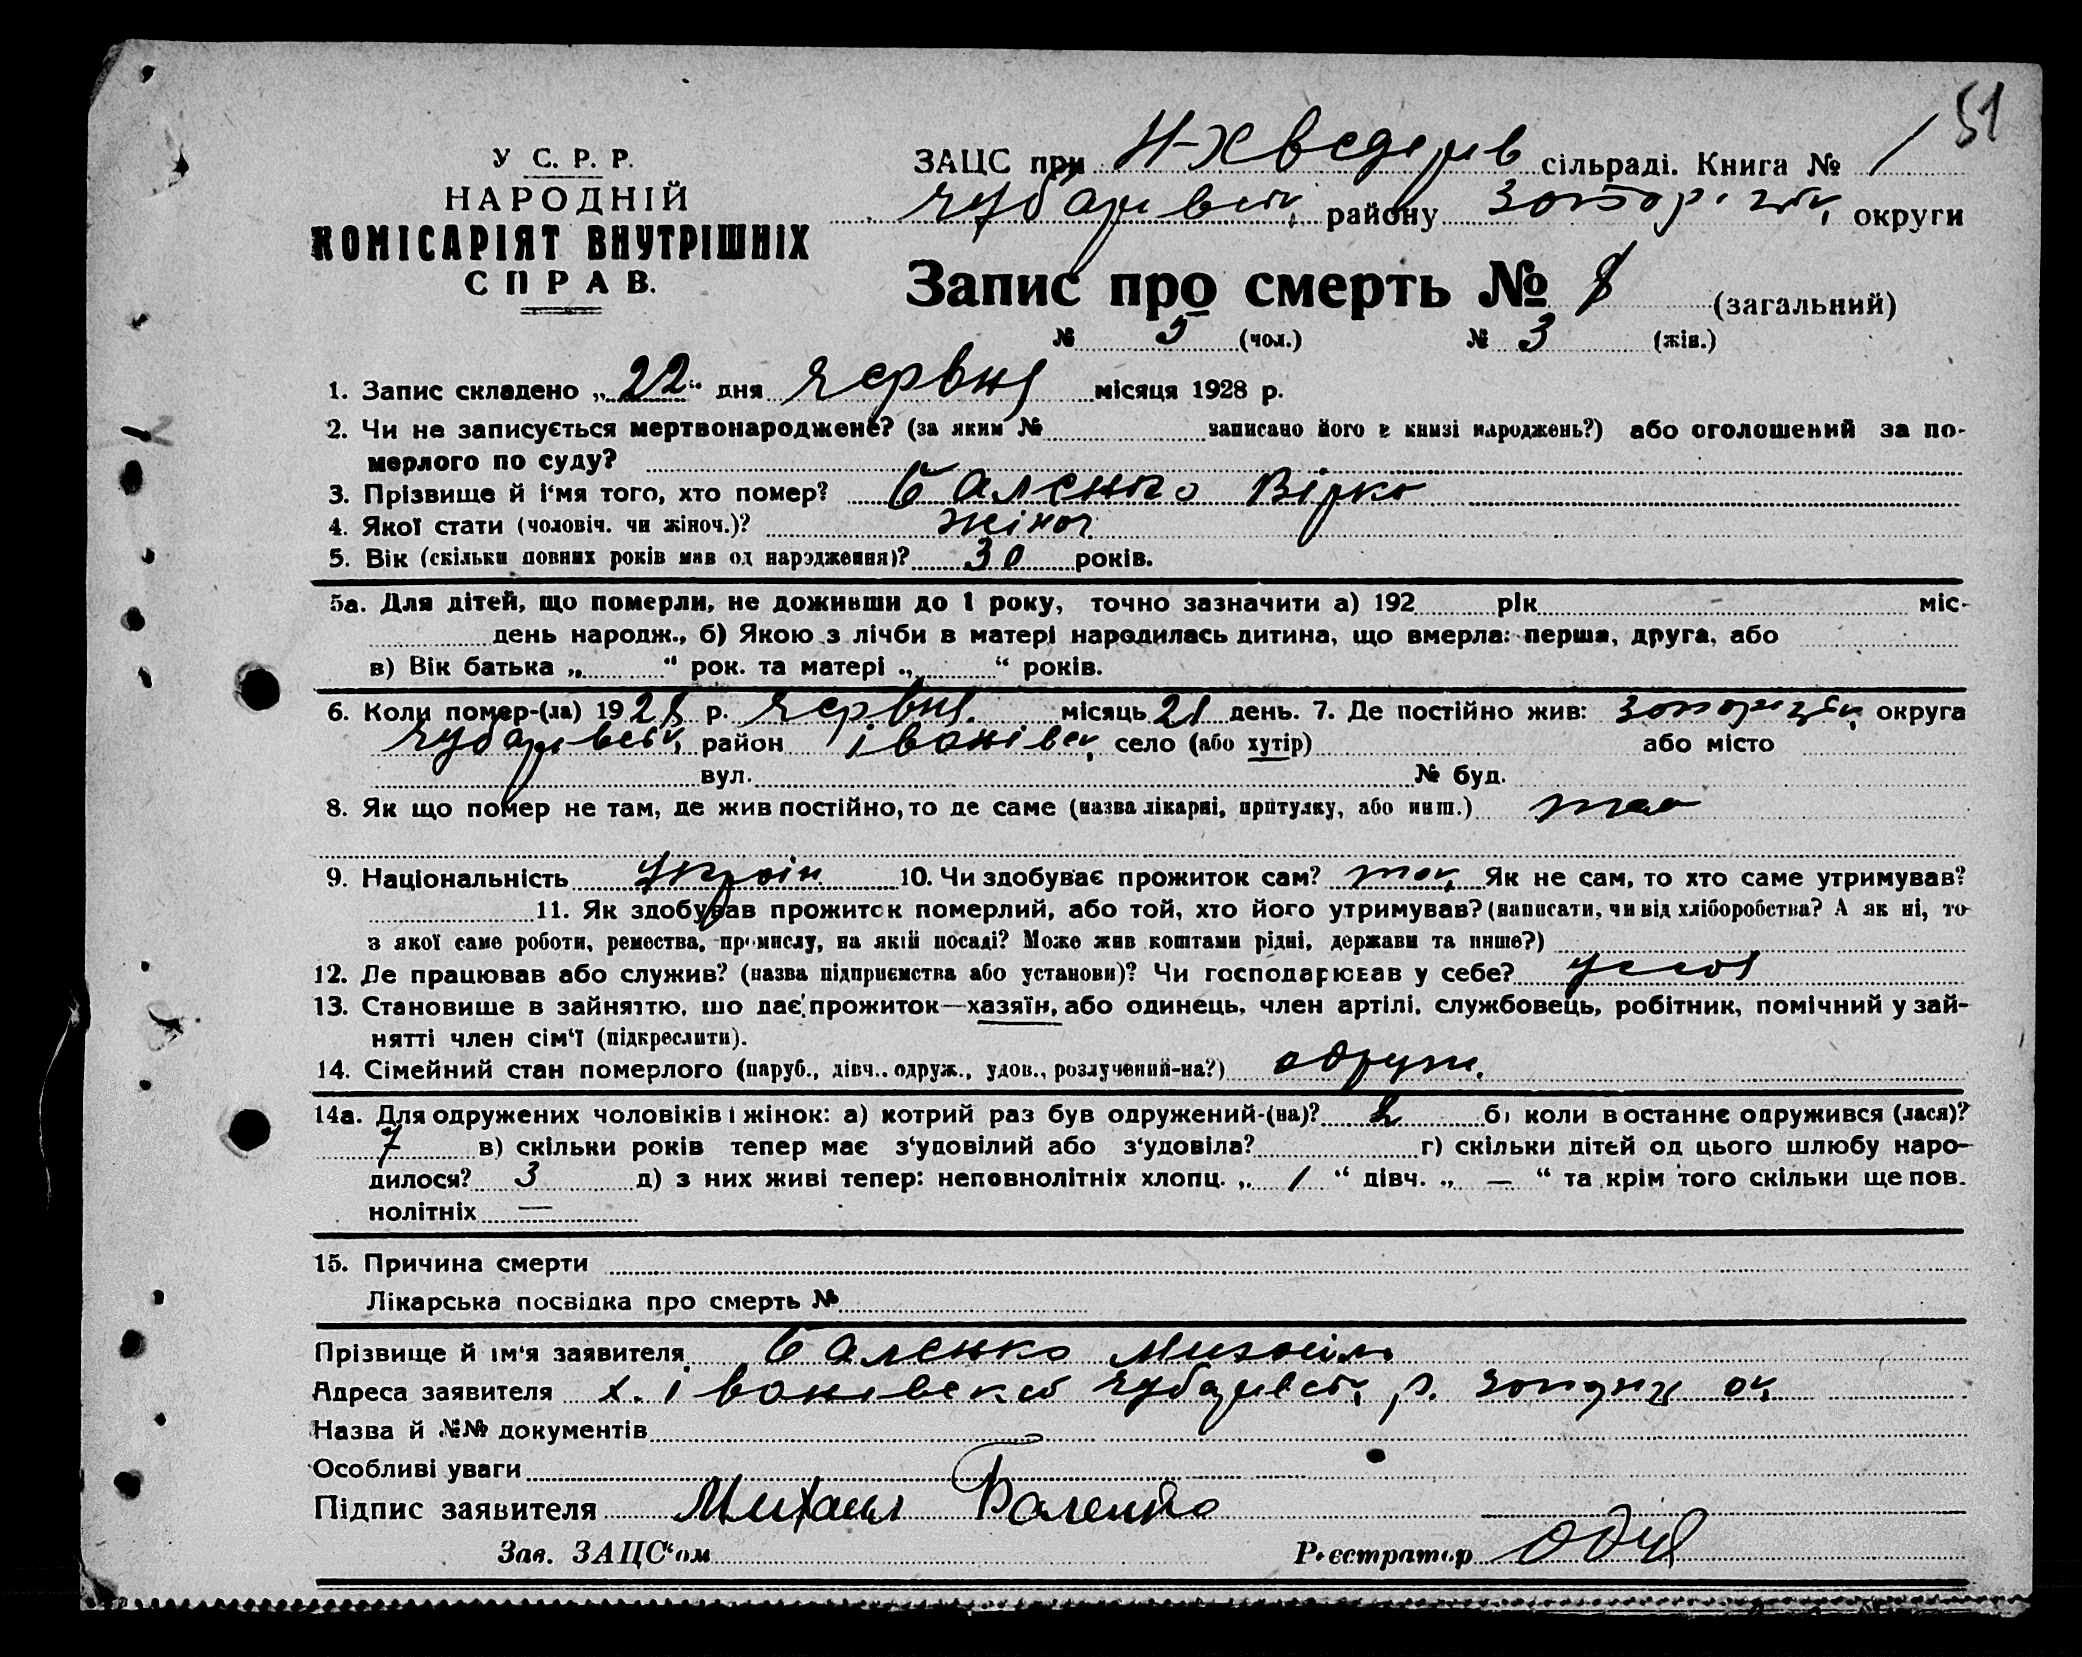 51
У С. Р. Р.
НАРОДНІЙ
КОМІСАРІЯТ ВНУТРІШНІХ
СПРАВ.
ЗАЦС при Н-Хведорів сільраді. Книга № 1
Чубарівськ, району Запоріжж, округи
Запис про смерть № 8 (загальний)
№ 5 (чол.) № 3 (жін.)
1. Запис складено „22“ дня червня місяця 1928 р.
2. Чи не записується мертвонароджене? (за яким № записано його в книзі народжень?) або оголошений за по-
мерлого по суду?
3. Прізвище й і'мя того, хто помер? Баленко Вірка
4. Якої стати (чоловіч. чи жіноч.)? жіноч
5. Вік (скільки повних років мав од народження)? 30 років.
5а. Для дітей, що померли, не доживши до 1 року, точно зазначити а) 192 рік міс-
день народж., б) Якою з лічби в матері народилась дитина, що вмерла: перша, друга, або
в) Вік батька „ “ рок. та матері „ “ років.
6. Коли помер-(ла) 1928 р. червня місяць 21 день. 7. Де постійно жив: Запоріжж, округа
Чубарівськ, район Іванівськ, село (або хутір) або місто
вул. № буд.
8. Як що помер не там, де жив постійно, то де саме (назва лікарні, притулку, або инш.) там
9. Національність Україн. 10. Чи здобуває прожиток сам? Як не сам, то хто саме утримував?
11. Як здобував прожиток померлий, або той, хто його утримував? (написати, чи від хліборобства? А як ні, то
з якої саме роботи, ремества, промислу, на якій посаді? Може жив коштами рідні, держави та инше?)
12. Де працював або служив? (назва підприємства або установи)? Чи господарював у себе? у себя
13. Становище в зайняттю, що дає прожиток—хазяїн, або одинець, член артілі, службовець, робітник, помічний у зай-
нятті член сім'ї (підкреслити).
14. Сімейний стан померлого (паруб., дівч., одруж., удов., розлучений-на?) одруж.
14а. Для одружених чоловіків і жінок: а) котрий раз був одружений-(на)? 2 б) коли в останнє одружився (лася)?
7 в) скільки років тепер має з'уповілий або з'удовіла? г) скільки дітей од цього шлюбу наро-
дилося? 3 д) з них живі тепер: неповнолітніх хлопц. „ 1 “ дівч. „ — “ та крім того скільки ще пов.
нолітніх —
15. Причина смерти
Лікарська посвідка про смерть №
Прізвище й ім'я заявителя Баленко Михаіл
Адреса заявителя х. Іванівський Чубарівськ, р. Запоріж ок,
Назва й №№ документів
Особливі уваги
Підпис заявителя Михаил Баленко
Зав. ЗАЦС'ом Реєстратор